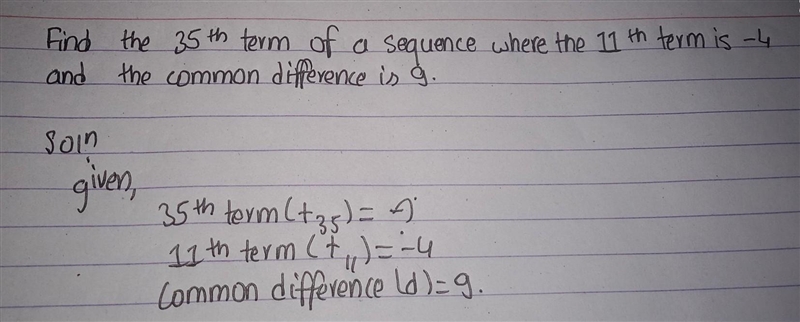 Find the 35th term of a sequence where the 11th term is -4
and the common difference is 9.
Soln
given,
35th term (t35) = ?
11th term (t11) = -4
Common difference (d) = 9.